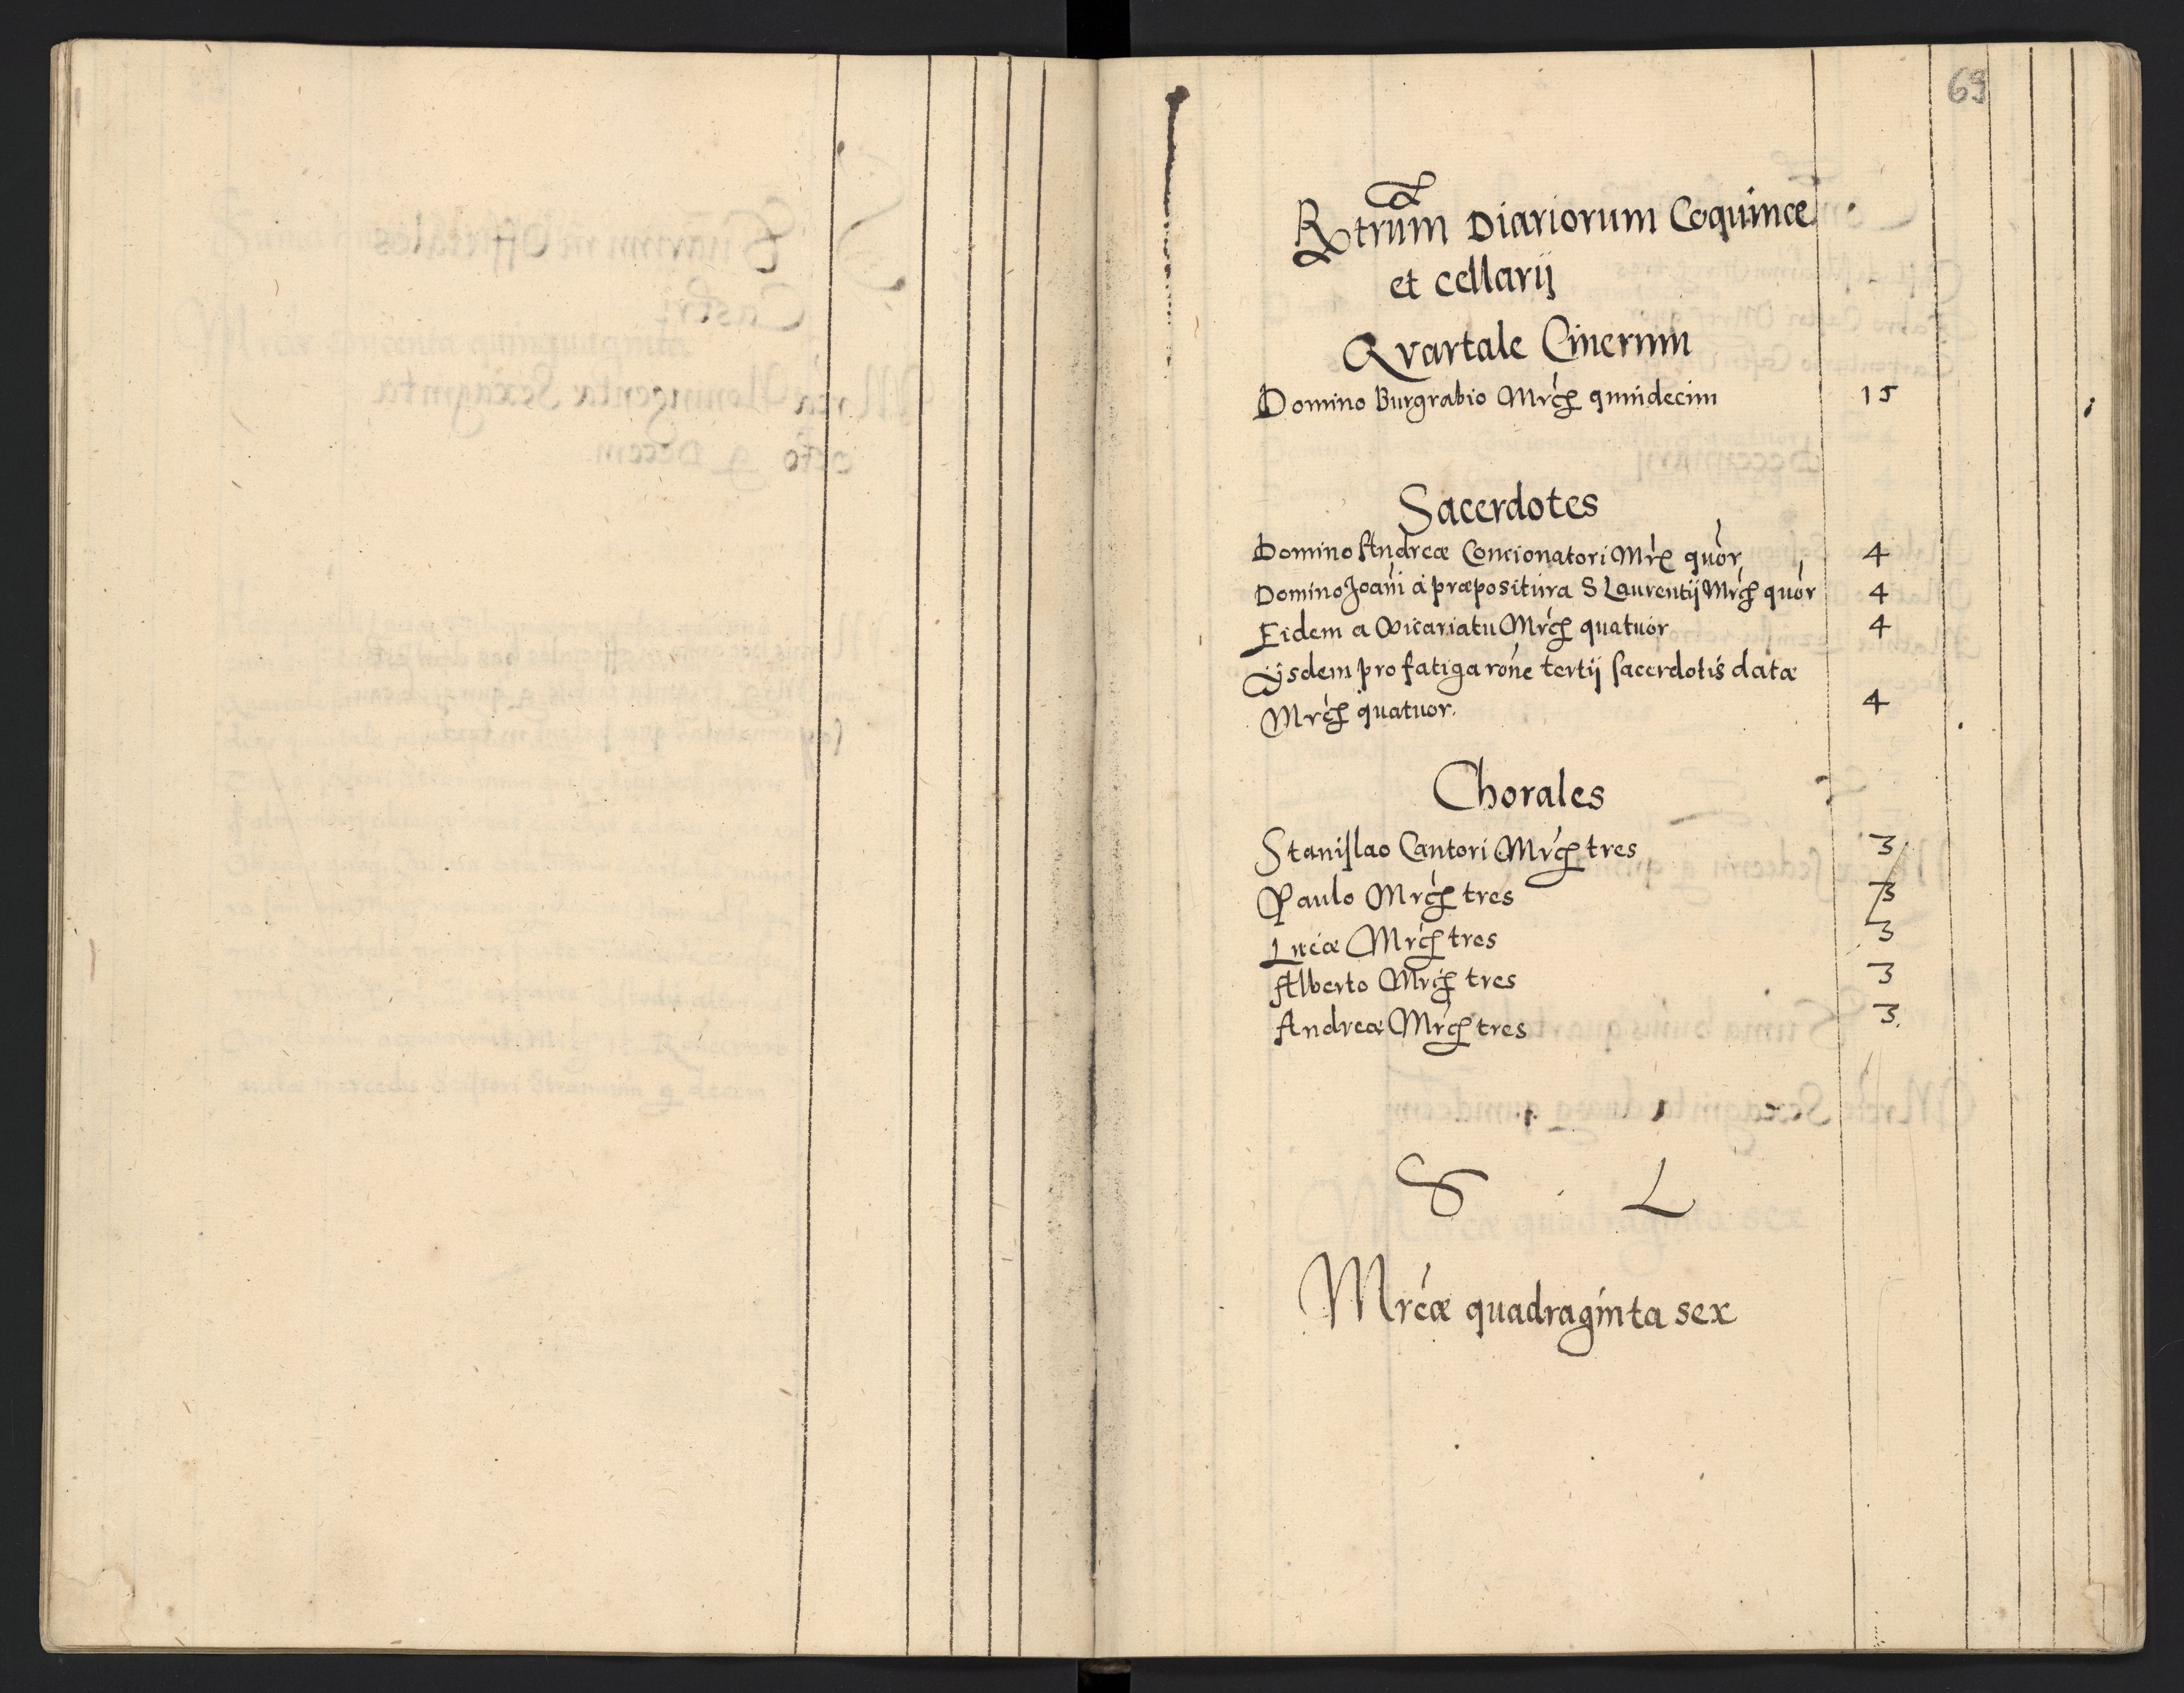 69
Rtrum Diariorum Coquinæ
et cellarij
Qvartale Cinerum
Domino Burgrabio Mrcȩ quindecim 15
Sacerdotes
Domino Andreæ Concionatori Mrȩ quor 4
Domino Joañi a præpositura S Laurentij Mrcȩ quor 4
Eidem a Vicariatu Mrcȩ quatuor 4
Ijsdem pro fatiga rone tertij sacerdotis datæ
Mrcȩ quatuor. 4
Chorales
Stanislao Cantori Mrcȩ tres 3
Paulo Mrcȩ tres 3
Lucæ Mrcȩ tres 3
Alberto Mrcȩ tres 3
Andreæ Mrcȩ tres 3.
S L
Mrcæ quadraginta sex